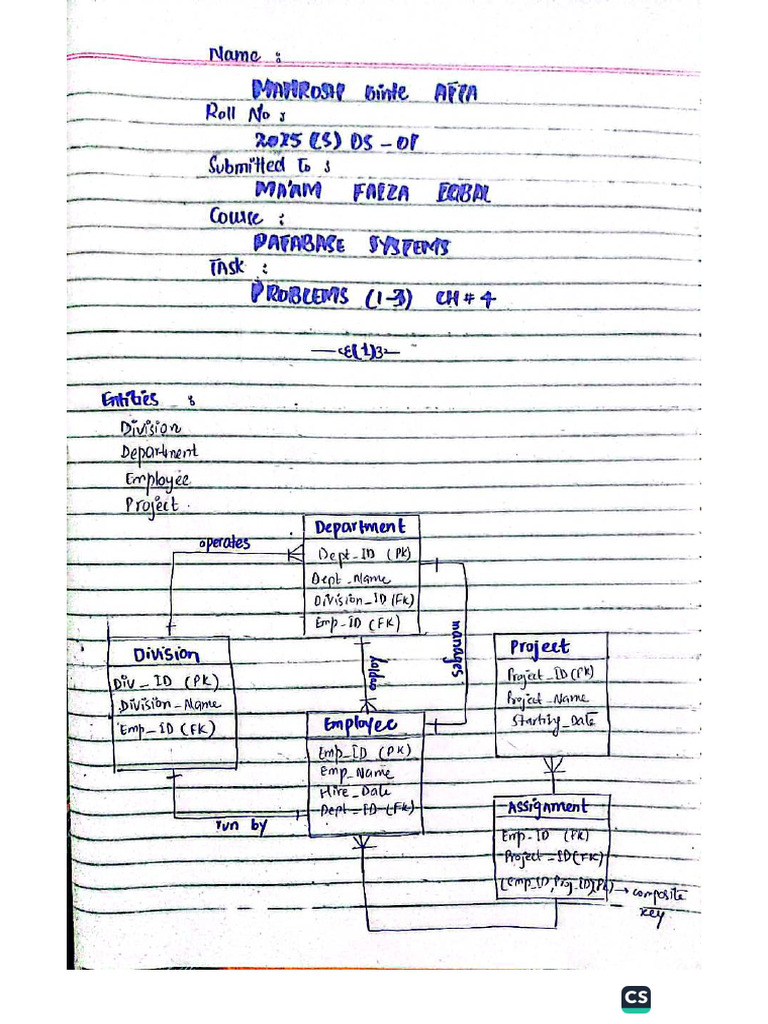 Name :
MAHROSH binte AFTA
Roll No :
2025 (S) DS - 01
Submitted to :
MA'AM FAIZA EQBAL
Course :
DATABASE SYSTEMS
Task :
PROBLEMS (1-3) CH # 4
(1)
Entities :
Division
Department
Employee
Project .
operates
Department
Dept_ID (PK)
Dept_Name
Division_ID (FK)
Emp_ID (FK)
manages
employ
Division
Div_ID (PK)
Division_Name
Emp_ID (FK)
run by
Employee
Emp_ID (PK)
Emp_Name
Hire_Date
Dept_ID (FK)
Project
Project_ID (PK)
Project_Name
Starting_Date
Assignment
Emp_ID (FK)
Project_ID (FK)
(Emp_ID, Proj_ID) PK) → composite
key
CS